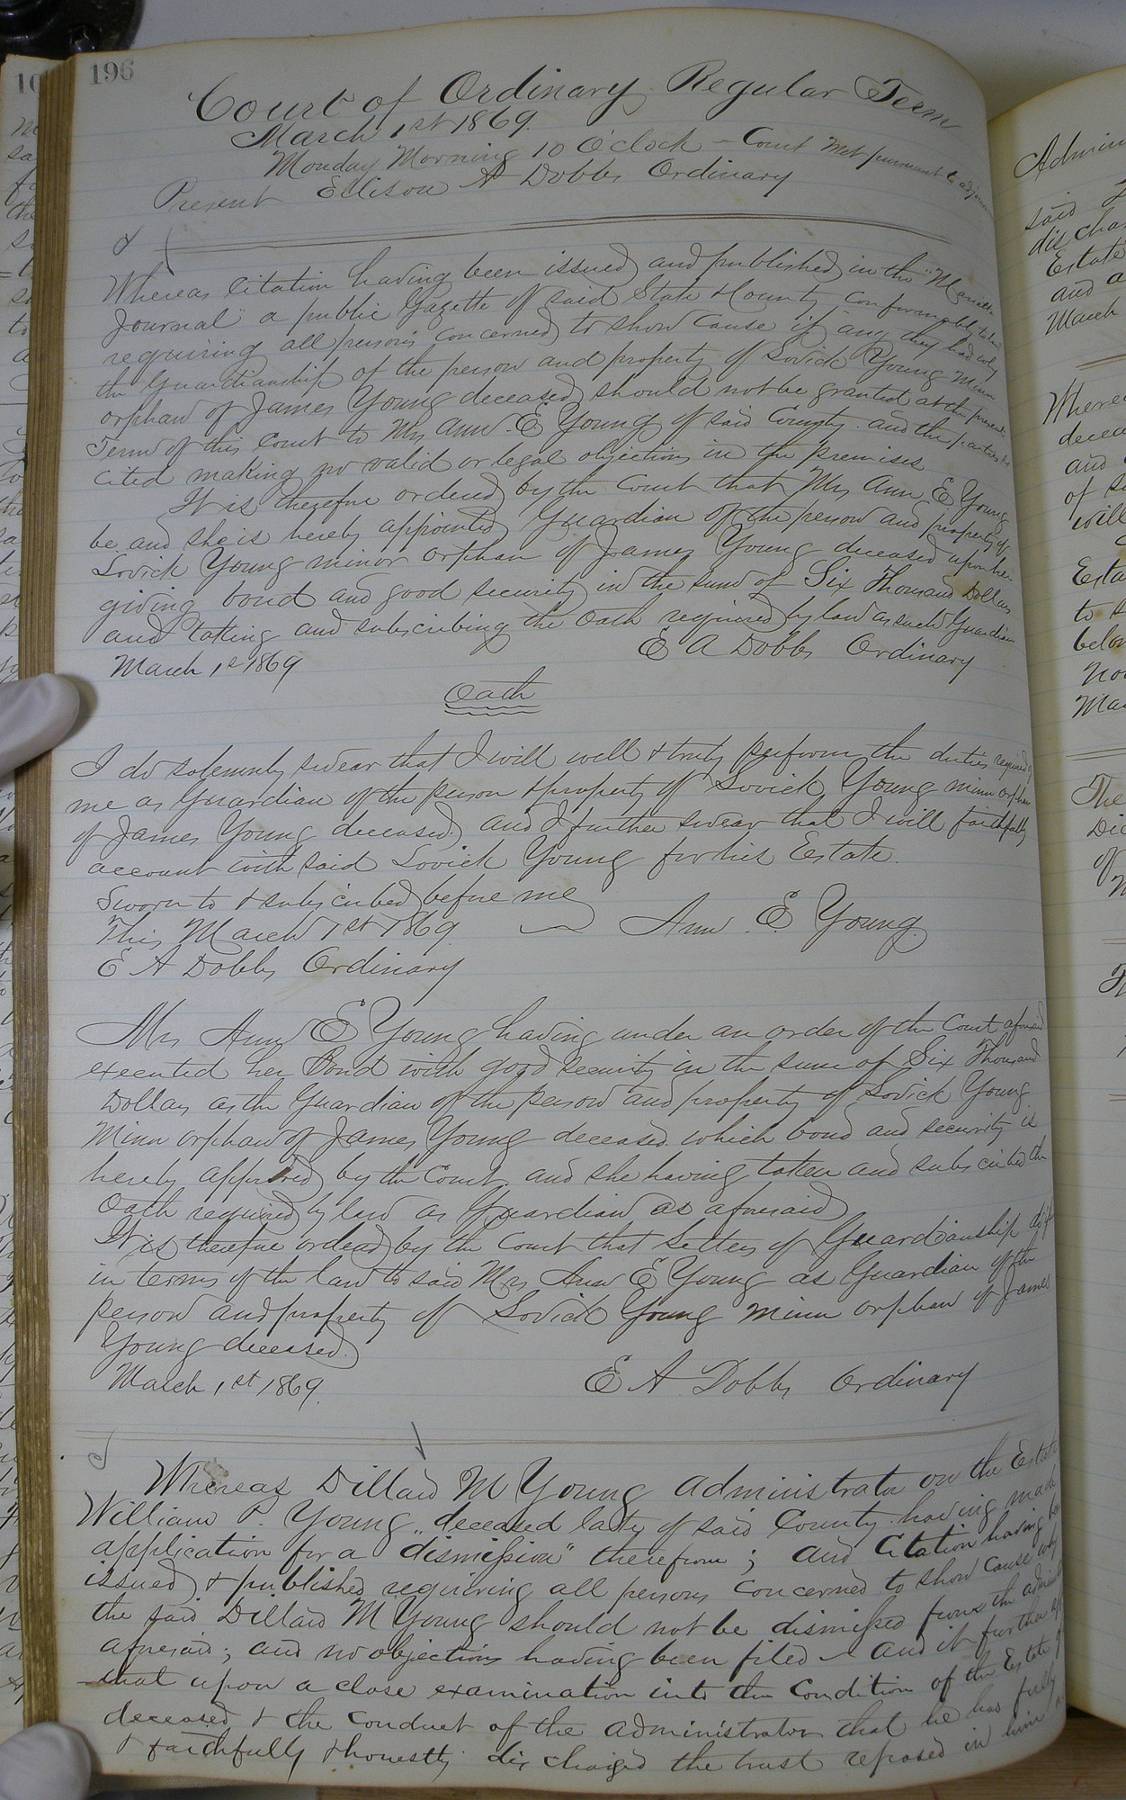 196
Court of Ordinary Regular Term
March 1st 1869.
Monday Morning 10 O'Clock – Court Met pursuant to
Present Ellison A Dobbs Ordinary
Whereas Citation having been issued and published in the "Marietta
Journal" a public Gazette of said State & County conformable to law
requiring all persons concerned to show cause if any they had why
the Guardianship of the person and property of Lovick Young Minor
orphan of James Young deceased should not be granted at the present
Term of this Court to Mrs Ann. E Young of said County. and the parties
cited making no valid or legal objections in the premises
It is therefore ordered by the Court that Mrs Ann E Young
be and she is hereby appointed Guardian of the person and property of
Lovick Young minor orphan of James Young deceased upon her
giving bond and good security in the sum of Six Thousand Dollars
and taking and subscribing the Oath required by law as such Guardian
March 1st 1869 E A Dobbs Ordinary
Oath
I do solemnly swear that I will well & truly perform the duties required of
me as Guardian of the person & property of Lovick Young minor orphan
of James Young deceased and I further swear that I will faithfully
account with said Lovick Young for his Estate.
Sworn to & subscribed before me
This March 1st 1869 Ann. E Young.
E A Dobbs Ordinary
Mrs Ann E Young having under an order of the Court aforesaid
executed her Bond with good security in the sum of Six Thousand
Dollars as the Guardian of the person and property of Lovick Young
Minor orphan of James Young deceased. which bond and security is
hereby approved by the Court. and she having taken and subscribed the
Oath required by law as Guardian as aforesaid
It is therefore ordered by the Court that Letters of Guardianship
in terms of the law to said Mrs Ann E Young as Guardian of the
person and property of Lovick Young minor orphan of James
Young deceased.
March 1st 1869. E A Dobbs Ordinary
Whereas Dillard M Young administrator on the Estate
William P. Young,, deceased late of said County. having made
application for a "dismission" therefrom; and Citation having been
issued & published requiring all persons concerned to show cause why
the said Dillard M Young should not be dismissed from the
aforesaid; and no objections having been filed – and it further
that upon a close examination into the Condition of the Estate of
deceased & the conduct of the administrator that he has fully
& faithfully & honestly discharged the trust reposed in him